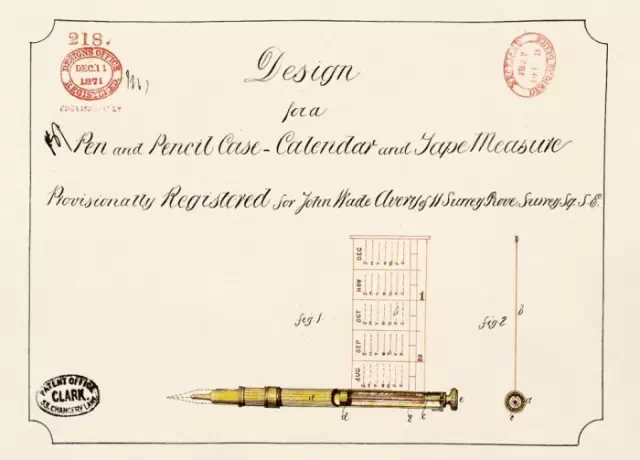 218.
DESIGNS OFFICE
DEC. 11
1871
REGISTERED
Design
for a
Pen and Pencil Case - Calendar and Tape Measure
Provisionally Registered for John Wade Avery of 11 Surrey Grove, Surrey Sq. S.E.
DEC
NOV
OCT
SEP
AUG
1
2
b
fig 1.
fig 2
b
a
d
c
e
a
PATENT OFFICE
CLARK.
53, CHANCERY LANE